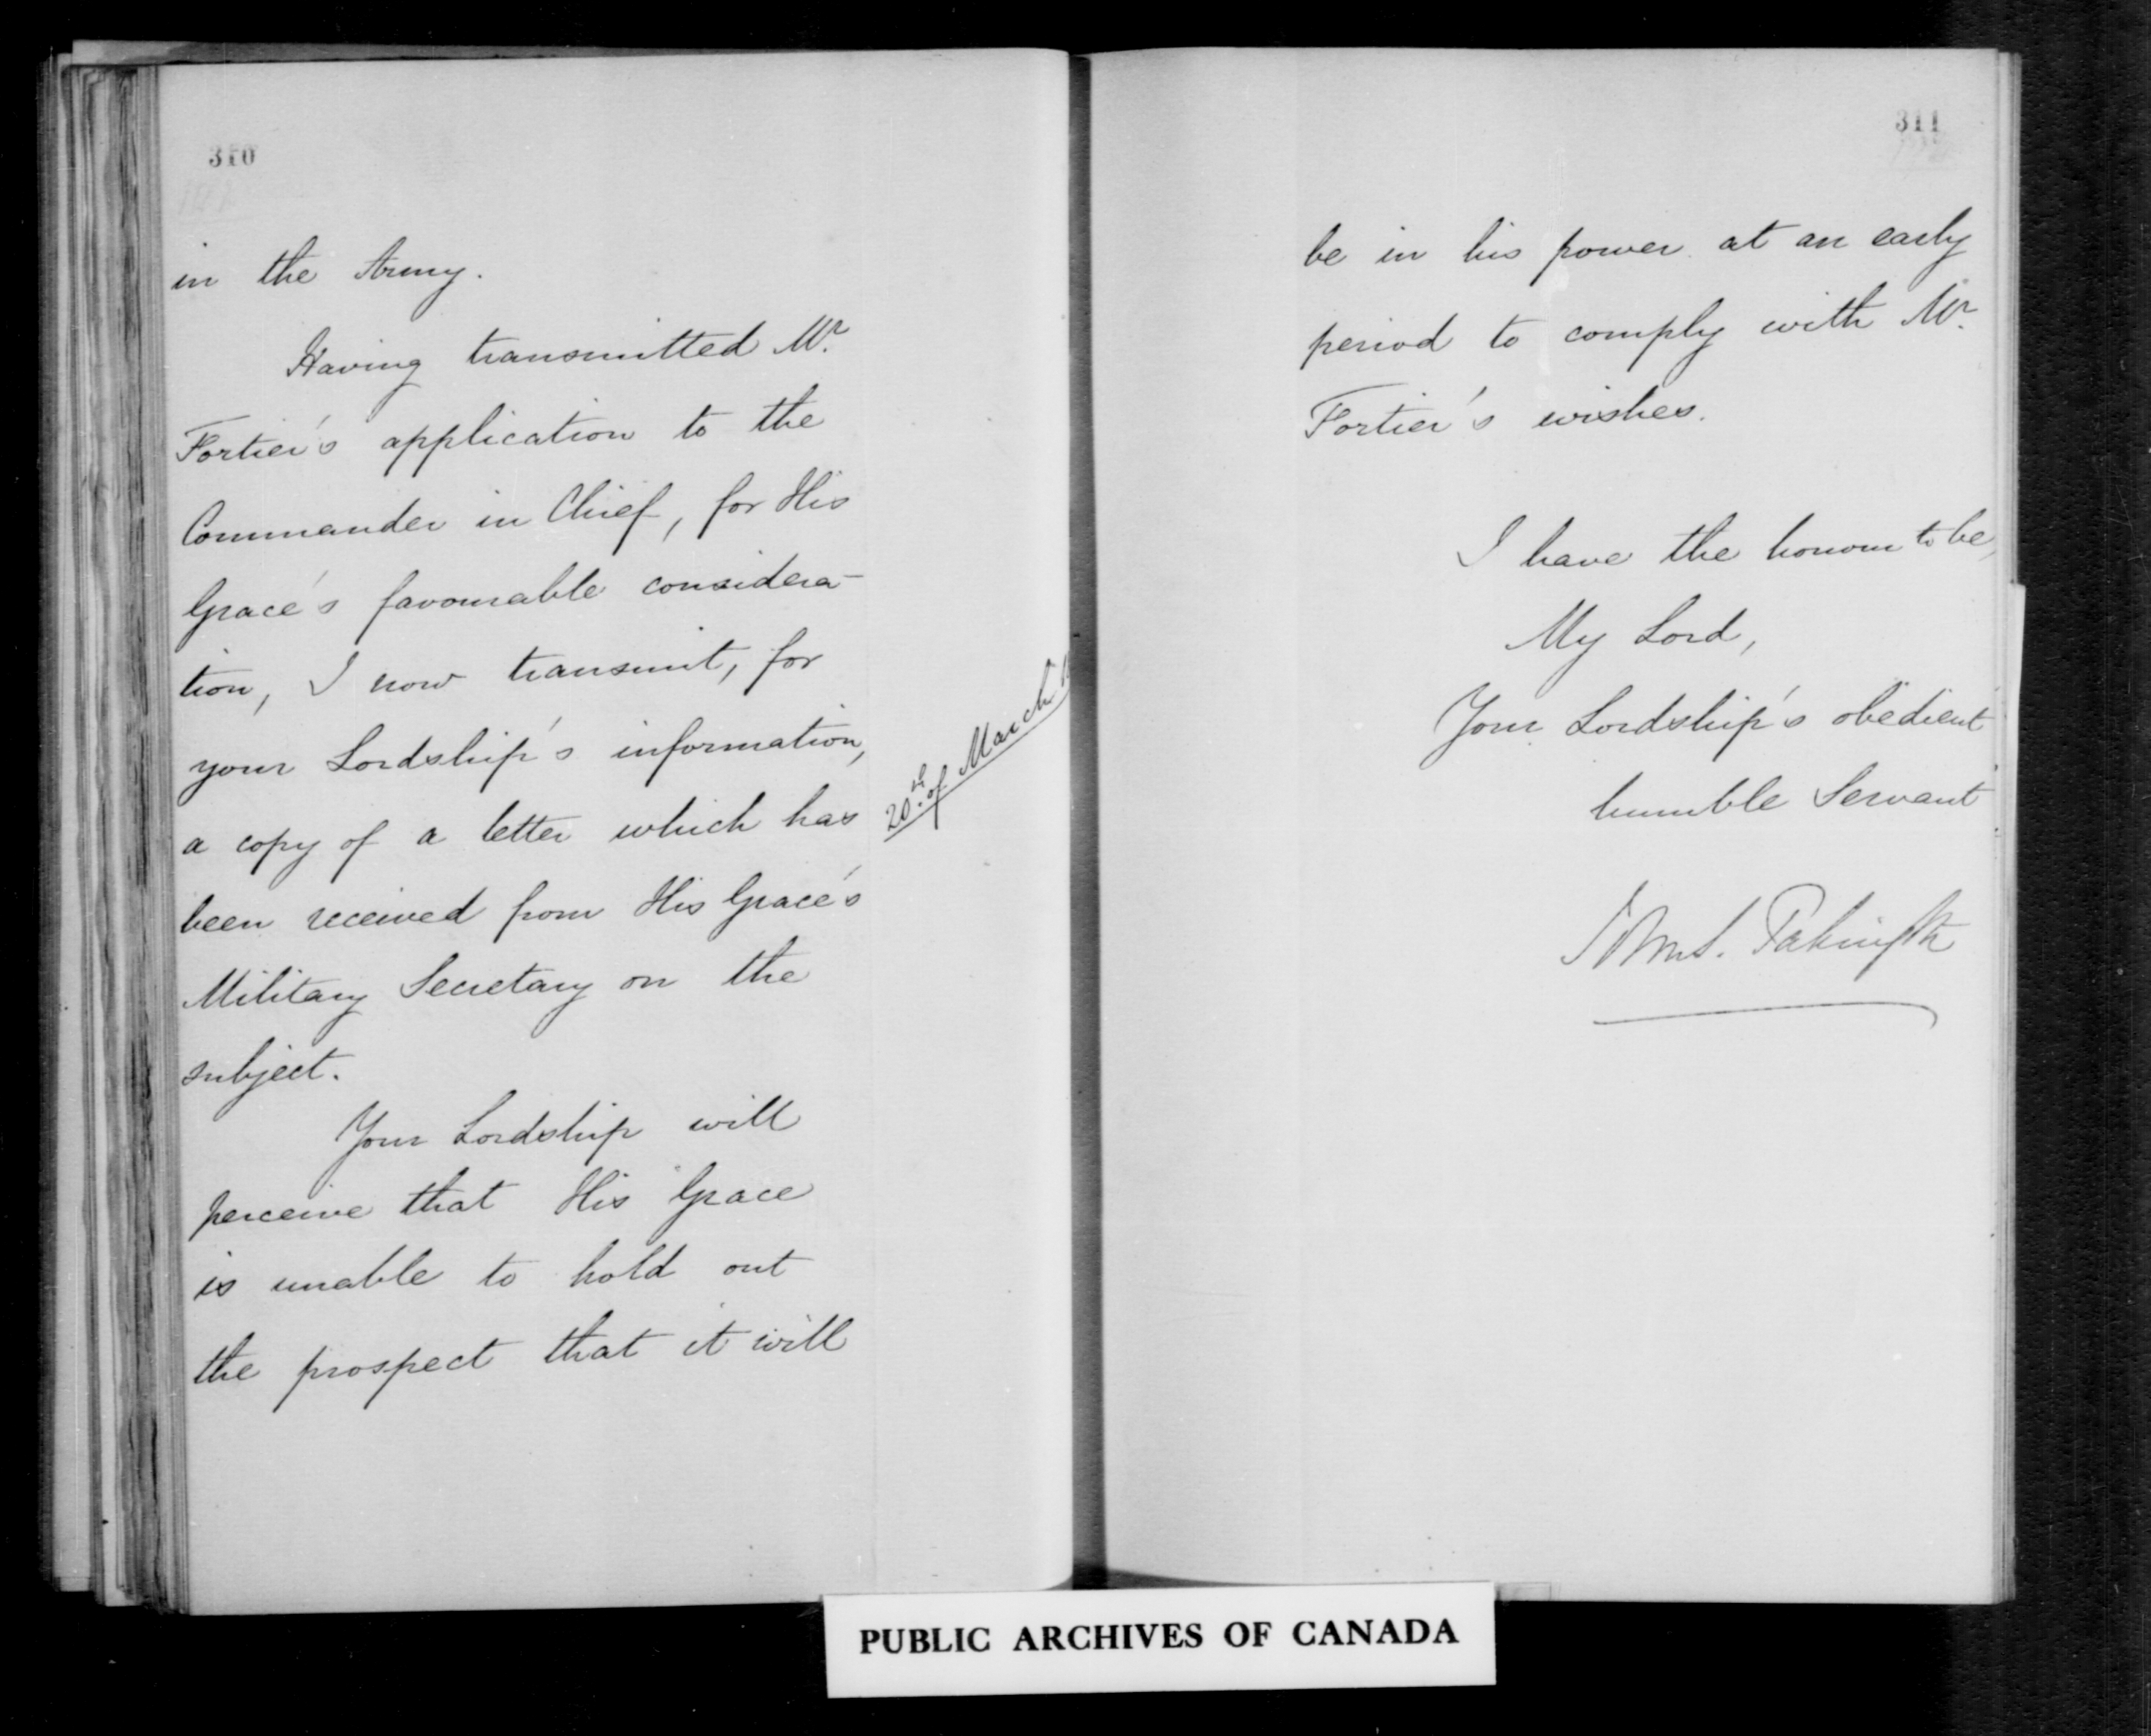 310
in the Army.
Having transmitted Mr.
Fortier's application to the
Commander in Chief, for His
Grace's favourable considera-
tion, I now transmit, for
your Lordship's information,
a copy of a letter which has
been received from His Grace's
Military Secretary on the
subject.
Your Lordship will
perceive that His Grace
is unable to hold out
the prospect that it will
20th of March
311
be in his power at an early
period to comply with Mr.
Fortier's wishes.
I have the honour to be,
My Lord,
Your Lordship's obedient
humble Servant
Pakington
PUBLIC ARCHIVES OF CANADA